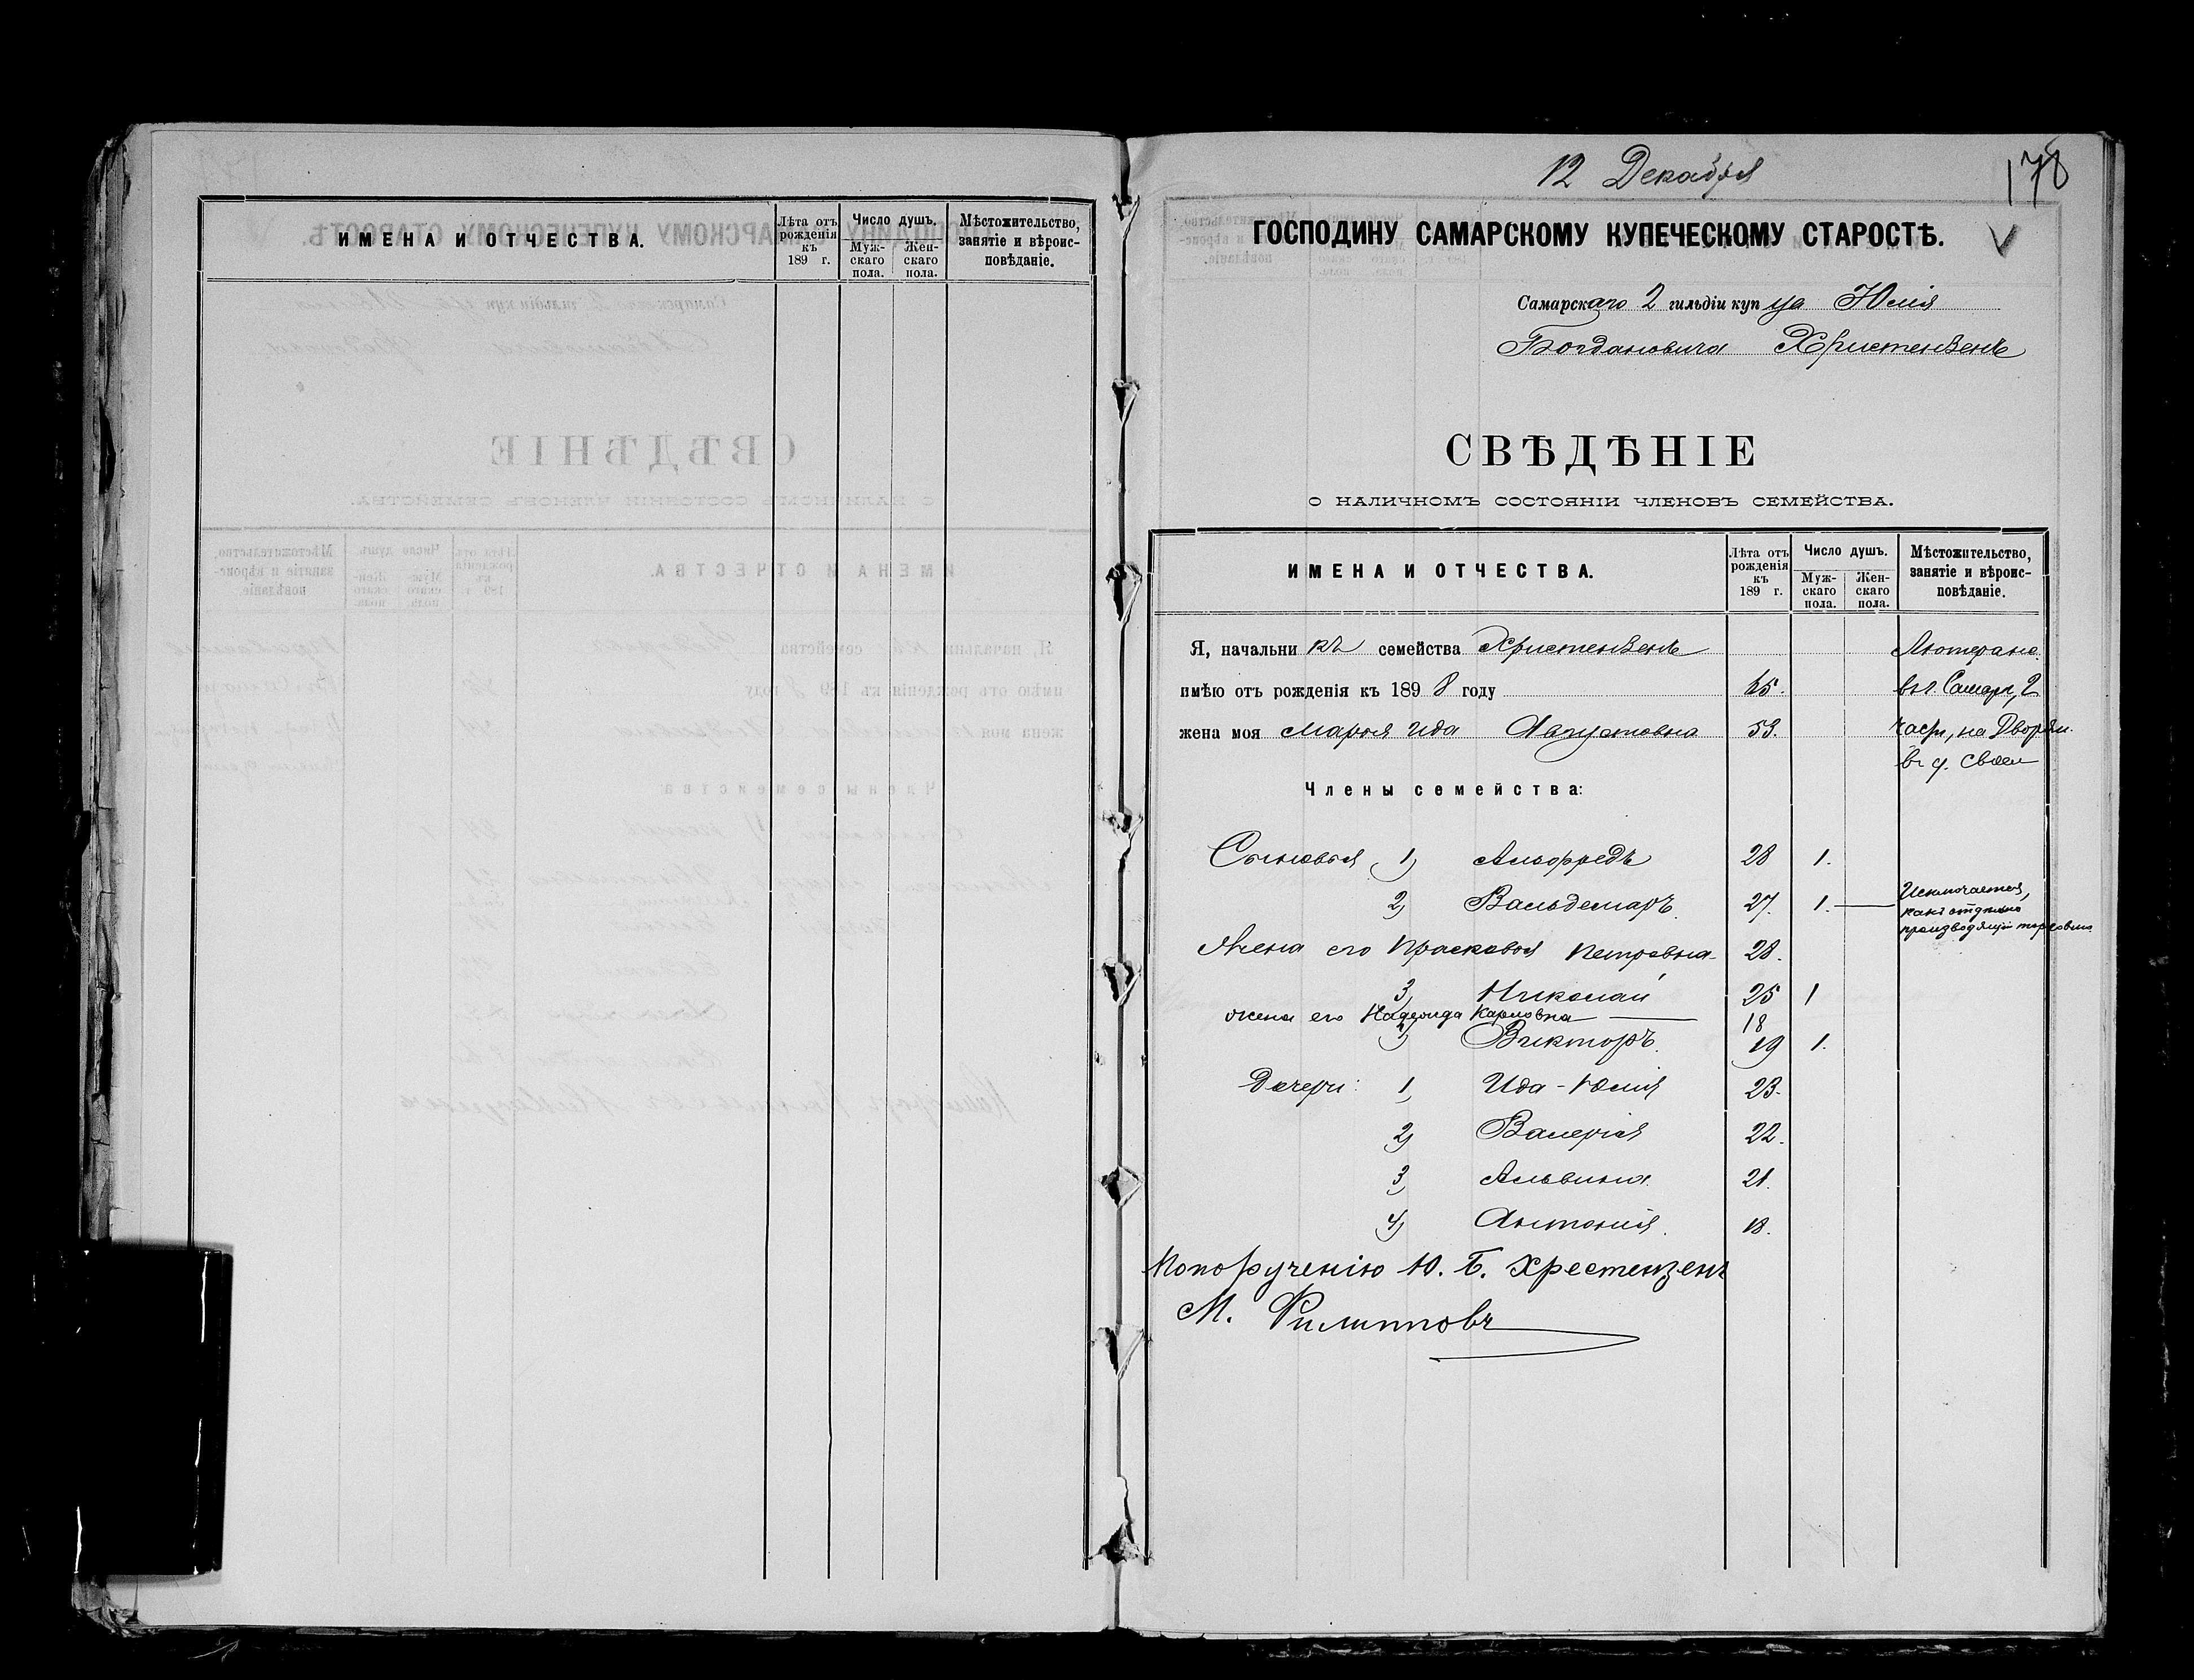 ИМЕНА И ОТЧЕСТВА.
Лѣта отъ рожденія къ 189 г.
Число душъ.
Муж-скаго пола.
Жен-скаго пола.
Мѣстожительство, занятіе и вѣроис-повѣданіе.
12 Декабря
178
ГОСПОДИНУ САМАРСКОМУ КУПЕЧЕСКОМУ СТАРОСТѢ.
Самарскаго 2 гильдіи купца Юлія
Богдановича Христензенъ
СВѢДѢНІЕ
О НАЛИЧНОМЪ СОСТОЯНІИ ЧЛЕНОВЪ СЕМЕЙСТВА.
ИМЕНА И ОТЧЕСТВА.
Лѣта отъ рожденія къ 189 г.
Число душъ.
Муж-скаго пола.
Жен-скаго пола.
Мѣстожительство, занятіе и вѣроис-повѣданіе.
Я, начальникъ семейства Христензенъ Лютеране.
имѣю отъ рожденія къ 1898 году 65. въ г. Самарѣ, 2
жена моя Марья Ида Августовна 53. части, на Дворян.
въ д. своем
Члены семейства:
Сыновья 1) Альфредъ 28 1.
2) Вальдемаръ. 27. 1. — Исключается,
какъ отдѣльно
производящій торговлю
Жена его Прасковья Петровна 28.
3) Николай 25 1
жена его Надежда Карловна — 18
4) Викторъ. 19 1.
Дочери: 1) Ида-Юлія 23.
2) Валерія 22.
3) Альвина 21.
4) Антонія. 18.
По порученію Ю. Б. Хрестензенъ
М. Филипповъ